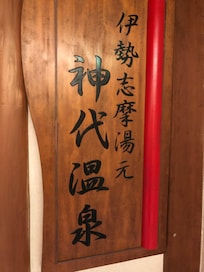 伊勢志摩湯元
神代温泉